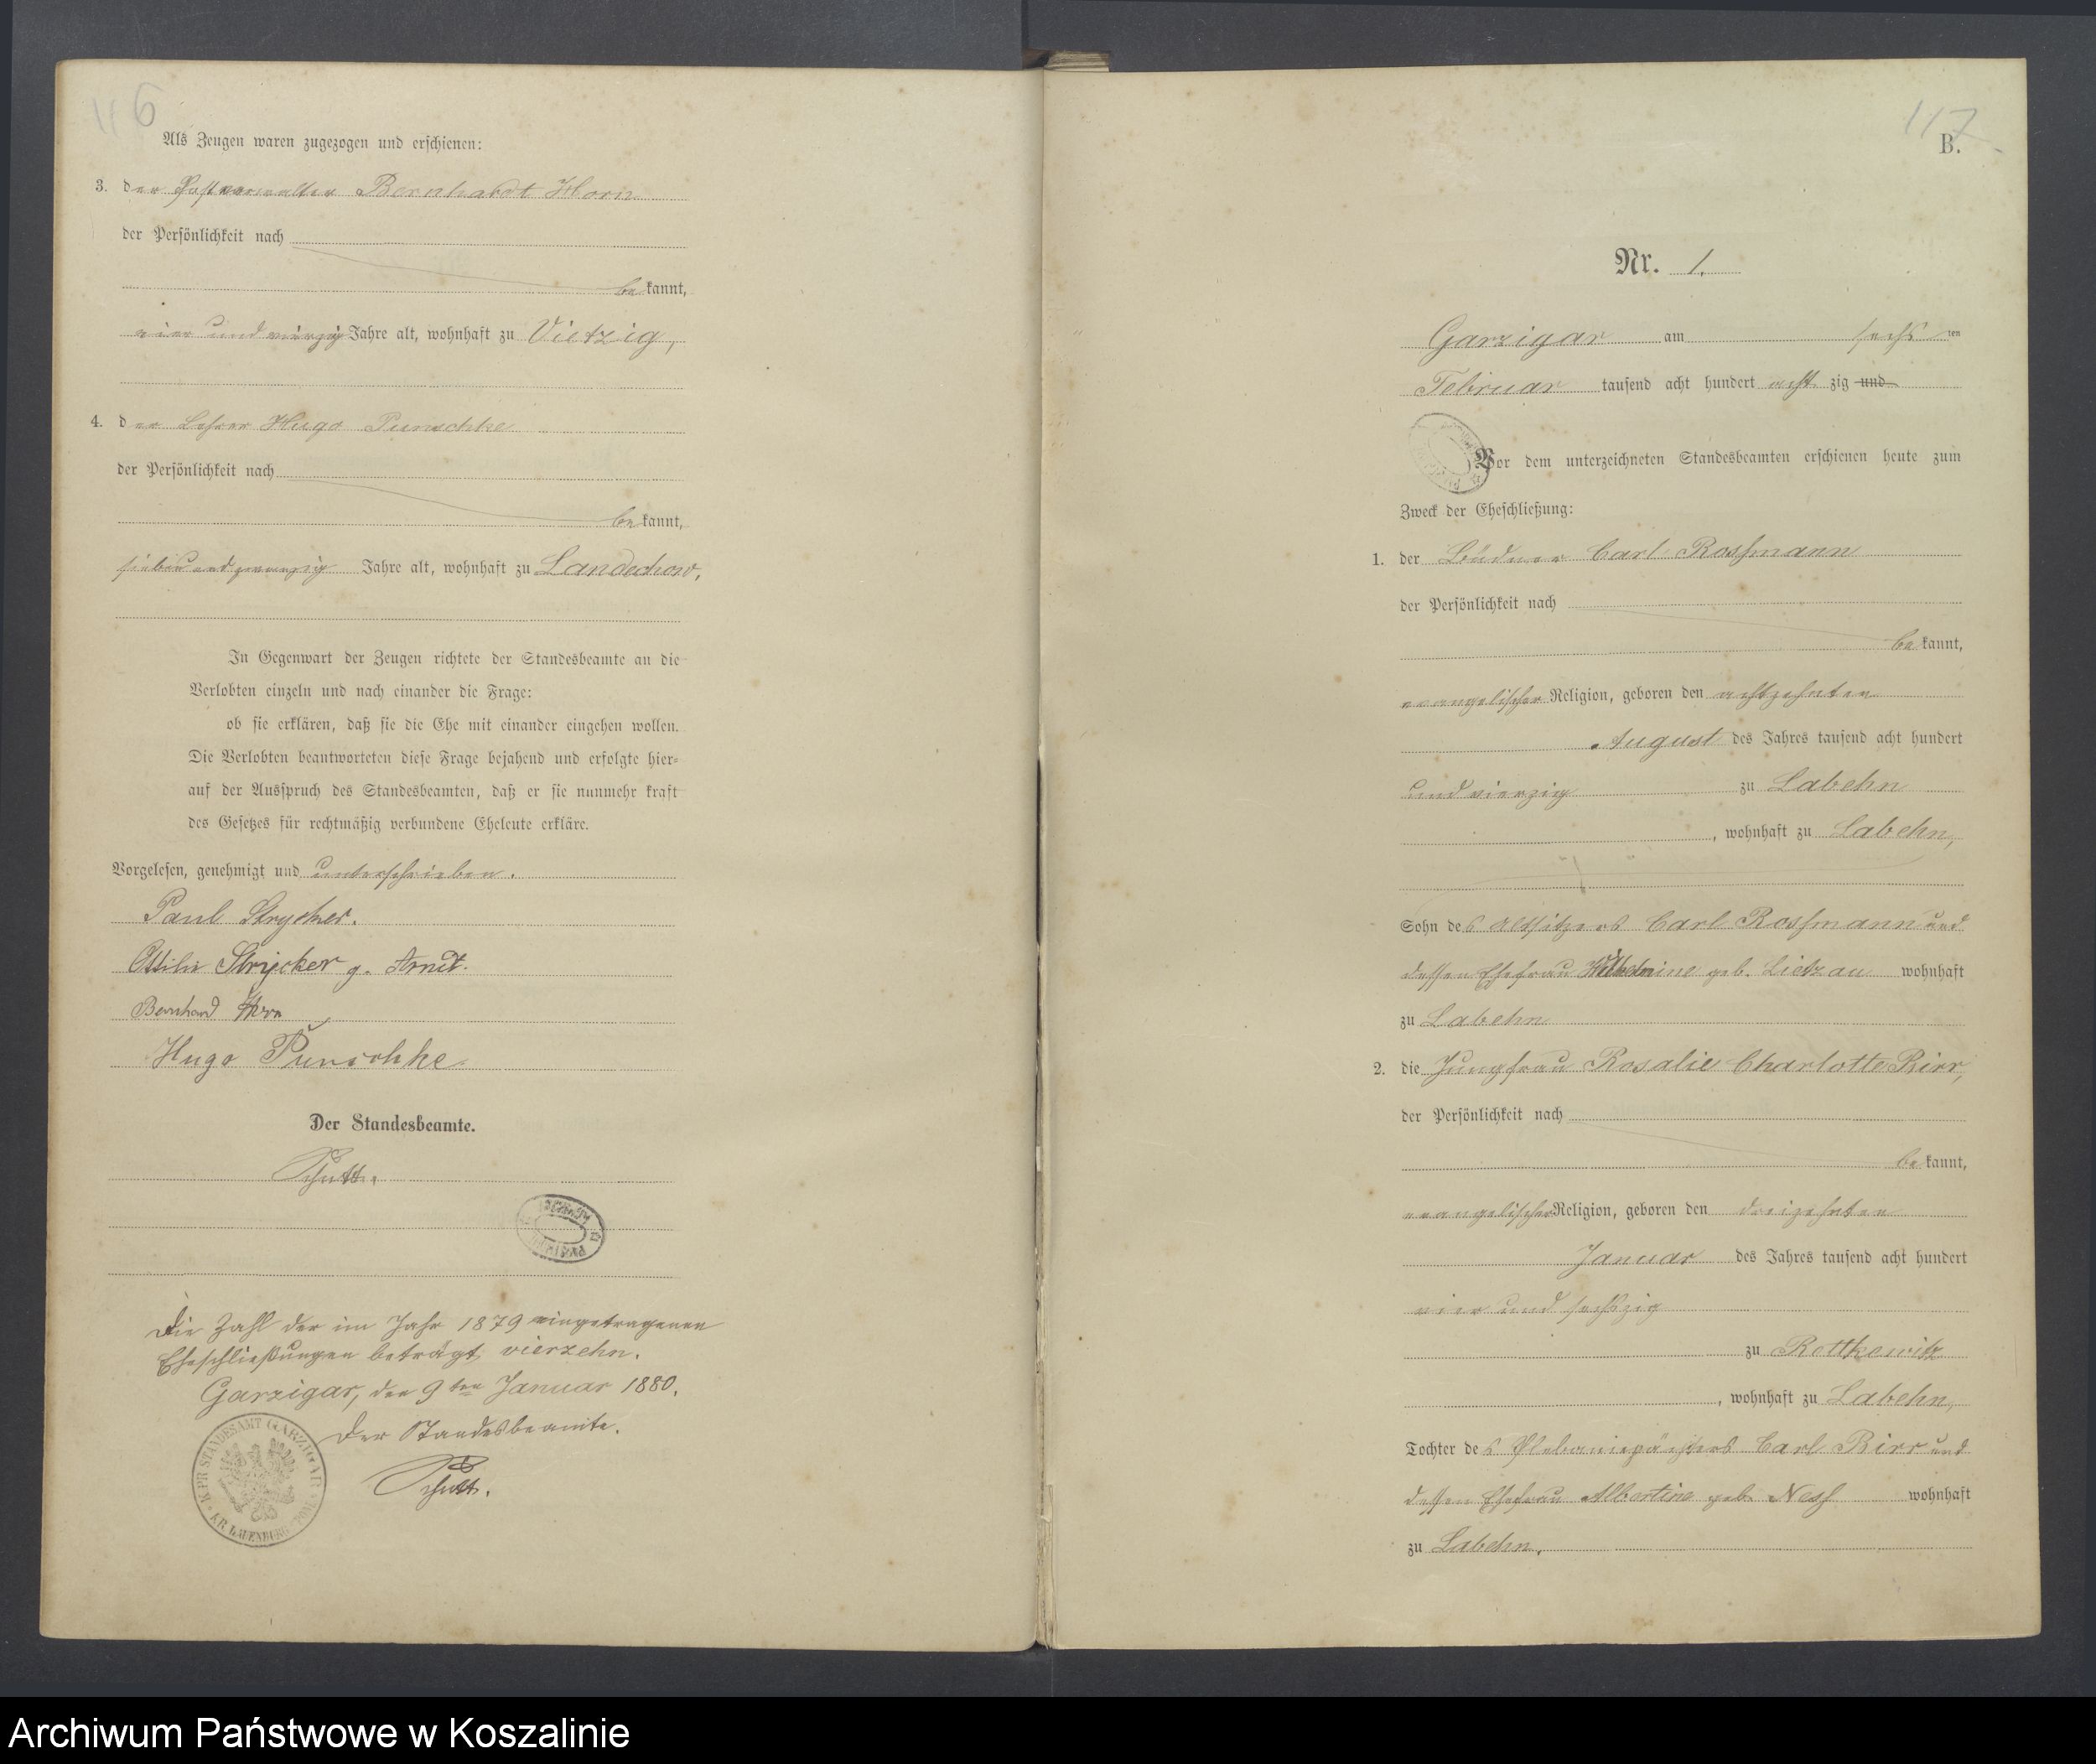 116
Als Zeugen waren zugezogen und erschienen:
3. der Postverwalter Bernhardt Horn
der Persönlichkeit nach
be kannt,
vier und vierzig Jahre alt, wohnhaft zu Vietzig,
4. der Lehrer Hugo Punschke
der Persönlichkeit nach
be kannt,
siebenundzwanzig Jahre alt, wohnhaft zu Landechow,
In Gegenwart der Zeugen richtete der Standesbeamte an die
Verlobten einzeln und nach einander die Frage:
ob sie erklären, daß sie die Ehe mit einander eingehen wollen.
Die Verlobten beantworteten diese Frage bejahend und erfolgte hier-
auf der Ausspruch des Standesbeamten, daß er sie nunmehr kraft
des Gesetzes für rechtmäßig verbundene Eheleute erkläre.
Vorgelesen, genehmigt und unterschrieben.
Paul Strycker.
Ottilie Strycker g. Arndt.
Bernhard Horn
Hugo Punschke
Der Standesbeamte.
Schutt.
Die Zahl der im Jahr 1879 eingetragenen
Eheschließungen beträgt vierzehn.
Garzigar, den 9ten Januar 1880.
Der Standesbeamte.
Schutt.
K. PR STANDESAMT GARZIGAR
KR LAUENBURG POM.
117
B.
Nr. 1.
Garzigar am sechs ten
Februar tausend acht hundert acht zig und
Vor dem unterzeichneten Standesbeamten erschienen heute zum
Zweck der Eheschließung:
1. der Büdner Carl Rossmann
der Persönlichkeit nach
be kannt,
evangelischer Religion, geboren den achtzehnten
August des Jahres tausend acht hundert
und vierzig zu Labehn
, wohnhaft zu Labehn,
Sohn des Altsitzers Carl Rossmann und
dessen Ehefrau Wilhelmine geb. Lietzau wohnhaft
zu Labehn
2. die Jungfrau Rosalie Charlotte Birr,
der Persönlichkeit nach
be kannt,
evangelischer Religion, geboren den dreizehnten
Januar des Jahres tausend acht hundert
vier und sechszig
zu Rottkewitz
, wohnhaft zu Labehn,
Tochter des Carl Birr und
dessen Ehefrau Albertine geb. Ness wohnhaft
zu Labehn.
Archiwum Państwowe w Koszalinie